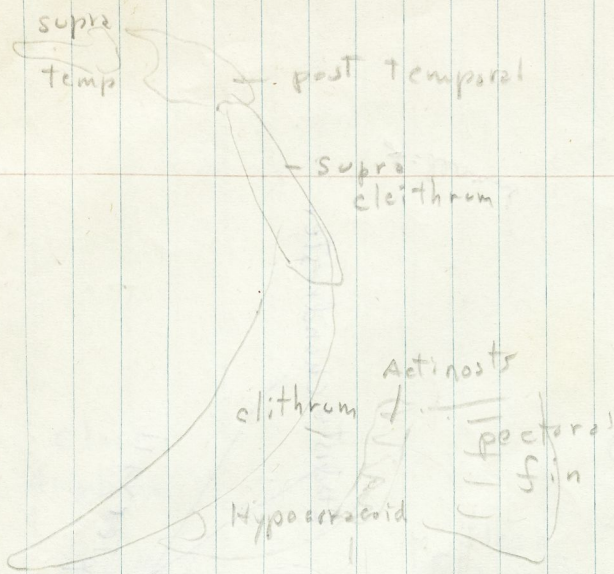 supra
temp
post temporal
supra
cleithrum
Actinosts
clithrum
pectoral
fin
Hypocoracoid